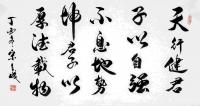 天行健君
子以自强
不息地势
坤君子以
厚德载物
丁酉